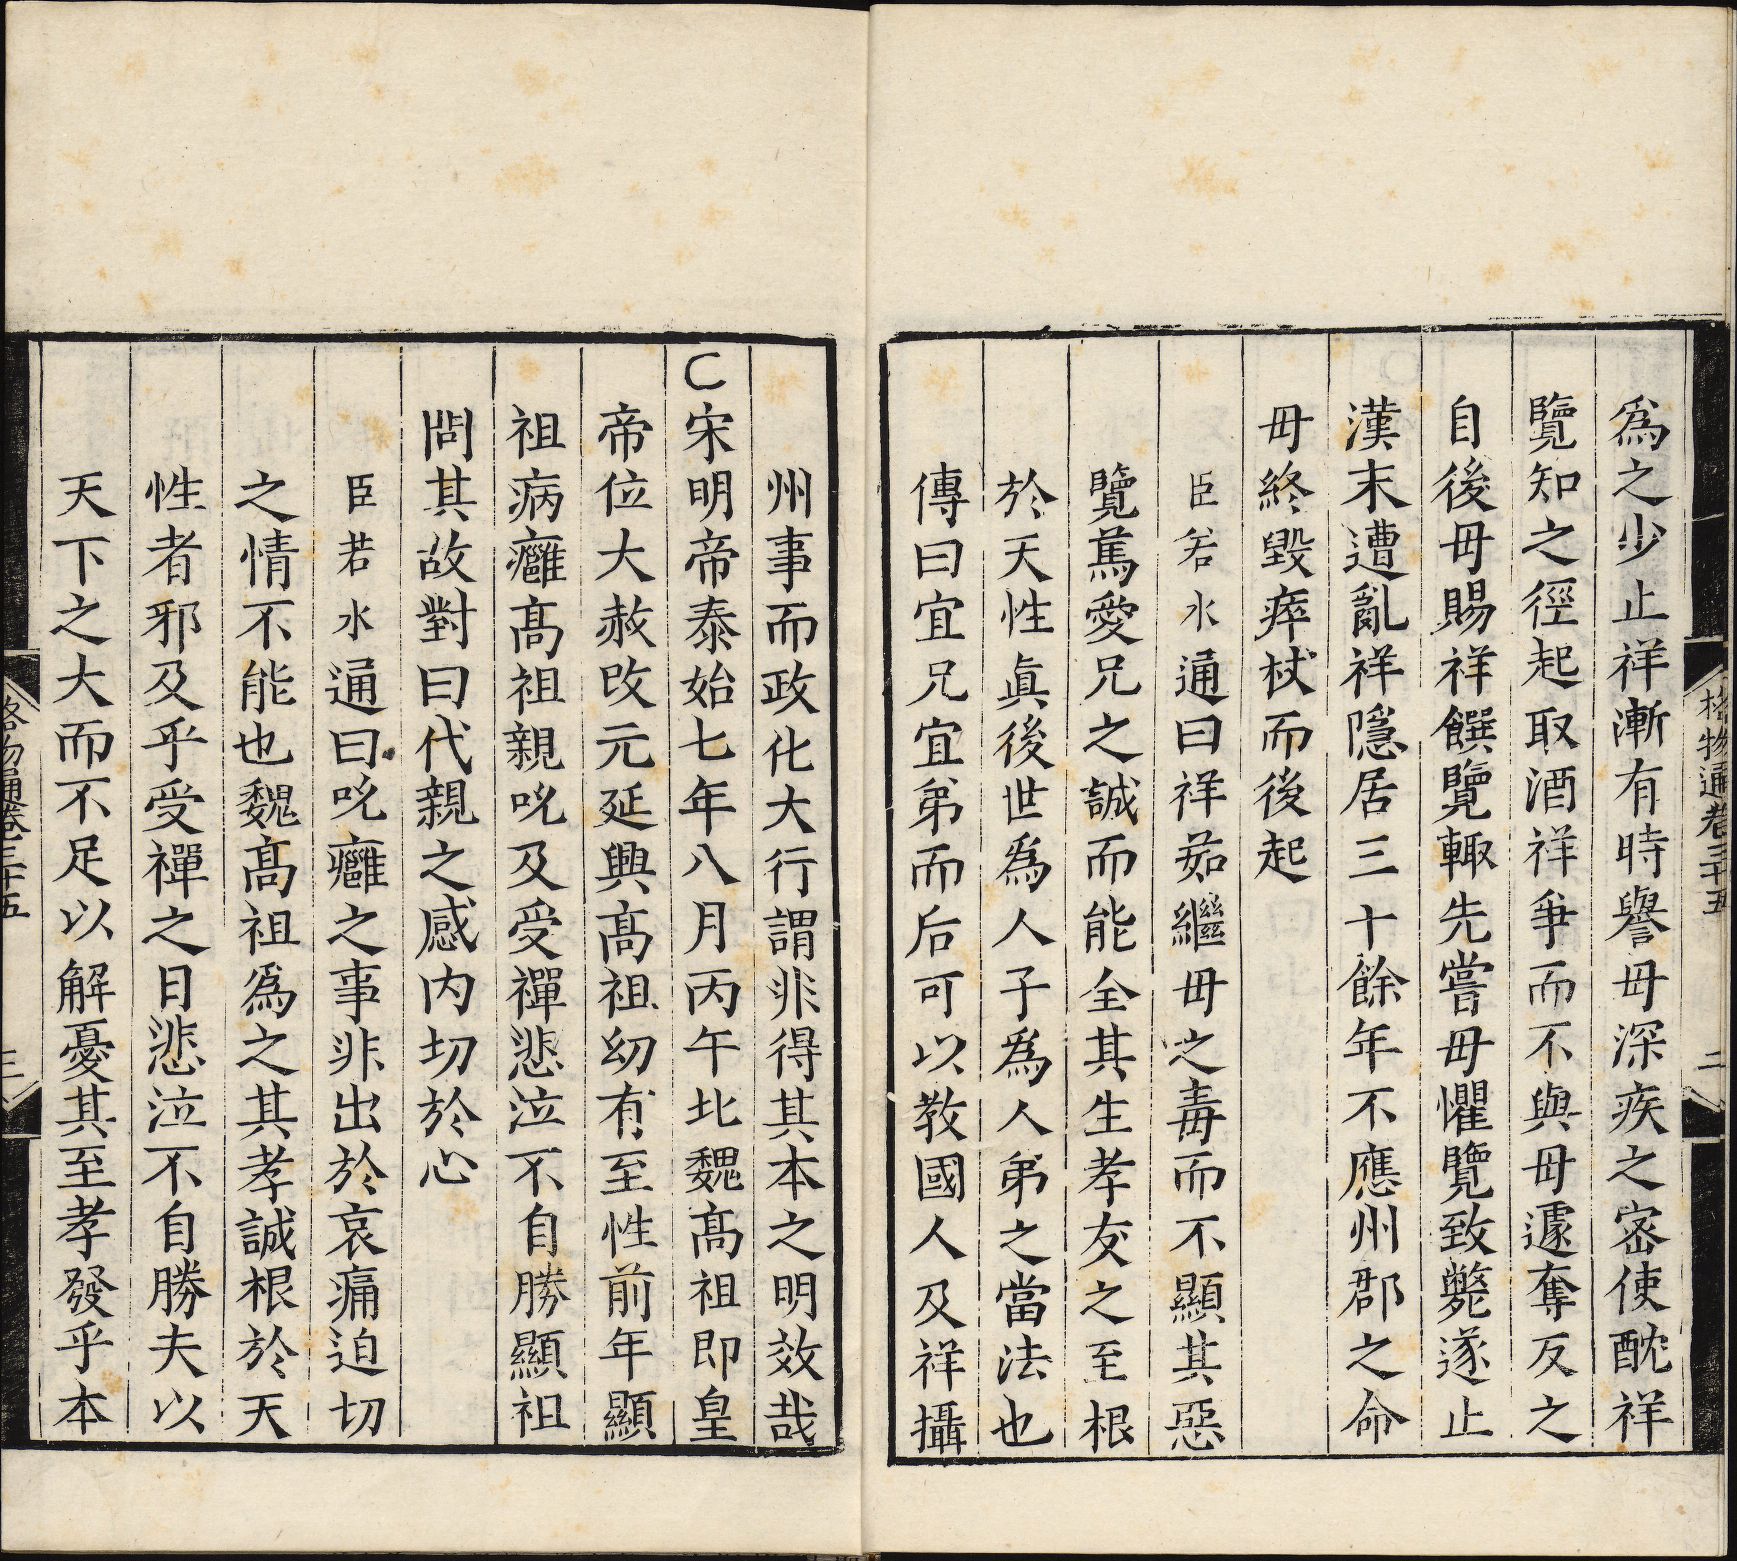 爲之少止祥漸有時譽母深疾之宻使酖祥
覽知之徑起取酒祥爭而不與母遽奪反之
自後母賜祥饌覽輒先嘗母懼覽致斃遂止
漢末遭亂祥隱居三十餘年不應州郡之命
母終毀瘁杖而後起
臣若水通曰祥茹繼母之毒而不顯其惡
覽篤愛兄之誠而能全其生孝友之至根
於天性眞後世爲人子爲人弟之當法也
傳曰宜兄宜弟而后可以教國人及祥攝
格物通卷三十五
二
州事而政化大行謂非得其本之明效哉
宋明帝泰始七年八月丙午北魏髙祖即皇
帝位大赦改元延興髙祖幼有至性前年顯
祖病癰髙祖親吮及受禪悲泣不自勝顯祖
問其故對曰代親之感内切於心
臣若水通曰吮癰之事非出於哀痛迫切
之情不能也魏髙祖爲之其孝誠根於天
性者邪及乎受禪之日悲泣不自勝夫以
天下之大而不足以解憂其至孝發乎本
格物通卷三十五
三